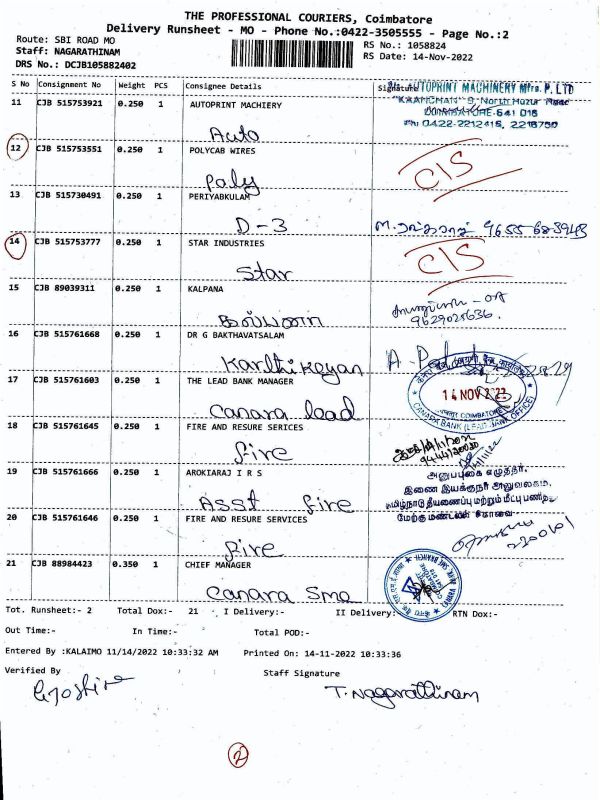 THE PROFESSIONAL COURIERS, Coimbatore
Delivery Runsheet - MO - Phone No.:0422-3505555 - Page No.:2
Route: SBI ROAD MO
RS No.: 1058824
Staff: NAGARATHINAM
RS Date: 14-Nov-2022
DRS No.: DCJB105882402
S No Consignment No Weight PCS Consignee Details Signature
AUTOPRINT MACHINERY Mfrs. P. LTD
"KAANCHAN" 9, North Huzur Road
COIMBATORE-641 018
Ph: 0422-2212416, 2216750
11 CJB 515753921 0.250 1 AUTOPRINT MACHIERY
Auto
12 CJB 515753551 0.250 1 POLYCAB WIRES
Poly
C/S
13 CJB 515730491 0.250 1 PERIYABKULAM
D-3
14 CJB 515753777 0.250 1 STAR INDUSTRIES
Star
C/S
15 CJB 89039311 0.250 1 KALPANA
கல்பனா
9629025636.
16 CJB 515761668 0.250 1 DR G BAKTHAVATSALAM
Karthikeyan
17 CJB 515761603 0.250 1 THE LEAD BANK MANAGER
Canara lead
14 NOV 2022
COIMBATORE
CANARA BANK (LEAD BANK OFFICE)
18 CJB 515761645 0.250 1 FIRE AND RESURE SERICES
fire
19 CJB 515761666 0.250 1 AROKIARAJ I R S
Asst fire
அனுப்புகை எழுத்தர்,
இணை இயக்குநர் அலுவலகம்,
தமிழ்நாடு தீயணைப்பு மற்றும் மீட்பு பணித்
மேற்கு மண்டலம் கோவை
20 CJB 515761646 0.250 1 FIRE AND RESURE SERVICES
fire
21 CJB 88984423 0.350 1 CHIEF MANAGER
Canara Sme
Tot. Runsheet:- 2 Total Dox:- 21 I Delivery:- II Delivery:- RTN Dox:-
Out Time:- In Time:- Total POD:-
Entered By :KALAIMO 11/14/2022 10:33:32 AM Printed On: 14-11-2022 10:33:36
Verified By Staff Signature
T. Nagarathinam
2